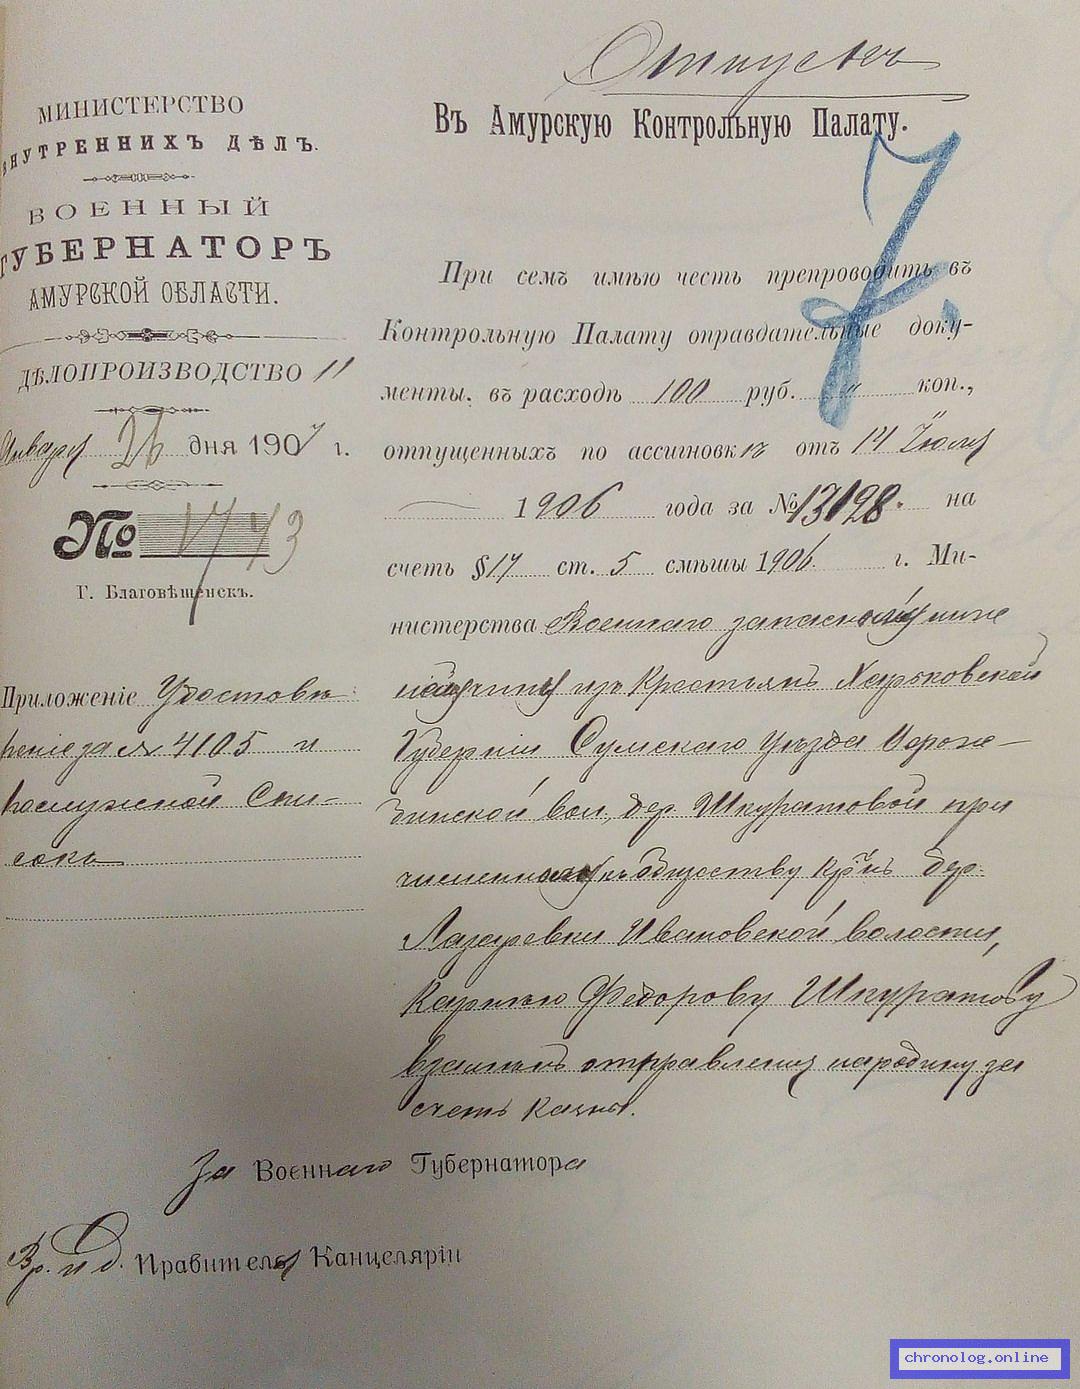 Отпускъ
МИНИСТЕРСТВО
ВНУТРЕННИХЪ ДѢЛЪ.
ВОЕННЫЙ
ГУБЕРНАТОРЪ
АМУРСКОЙ ОБЛАСТИ.
ДѢЛОПРОИЗВОДСТВО 11
Января 26 дня 1907 г.
№ 1743
Г. Благовѣщенскъ.
Приложеніе Удостовѣ
реніе за № 4105 и
послужной Спи-
сокъ
Въ Амурскую Контрольную Палату.
7
При семъ имѣю честь препроводить въ
Контрольную Палату оправдательные доку-
менты, въ расходѣ 100 руб. " коп.,
отпущенныхъ по ассигновкѣ отъ 14 Іюля
1906 года за № 13128. на
счетъ § 17 ст. 5 смѣты 1906 г. Ми-
нистерства Военнаго запасному
чину изъ крестьянъ Харьковской
Губерніи Сумскаго уѣзда
вол., дер. Шкуратовой при
численному къ обществу кр-нъ дер.
Лазаревки Ивановской волости,
Карпѣю Федорову Шкуратову
взамѣнъ отправленія народину за
счетъ казны.
За Военнаго Губернатора
Вр. и д. Правителя Канцеляріи
chronolog.online